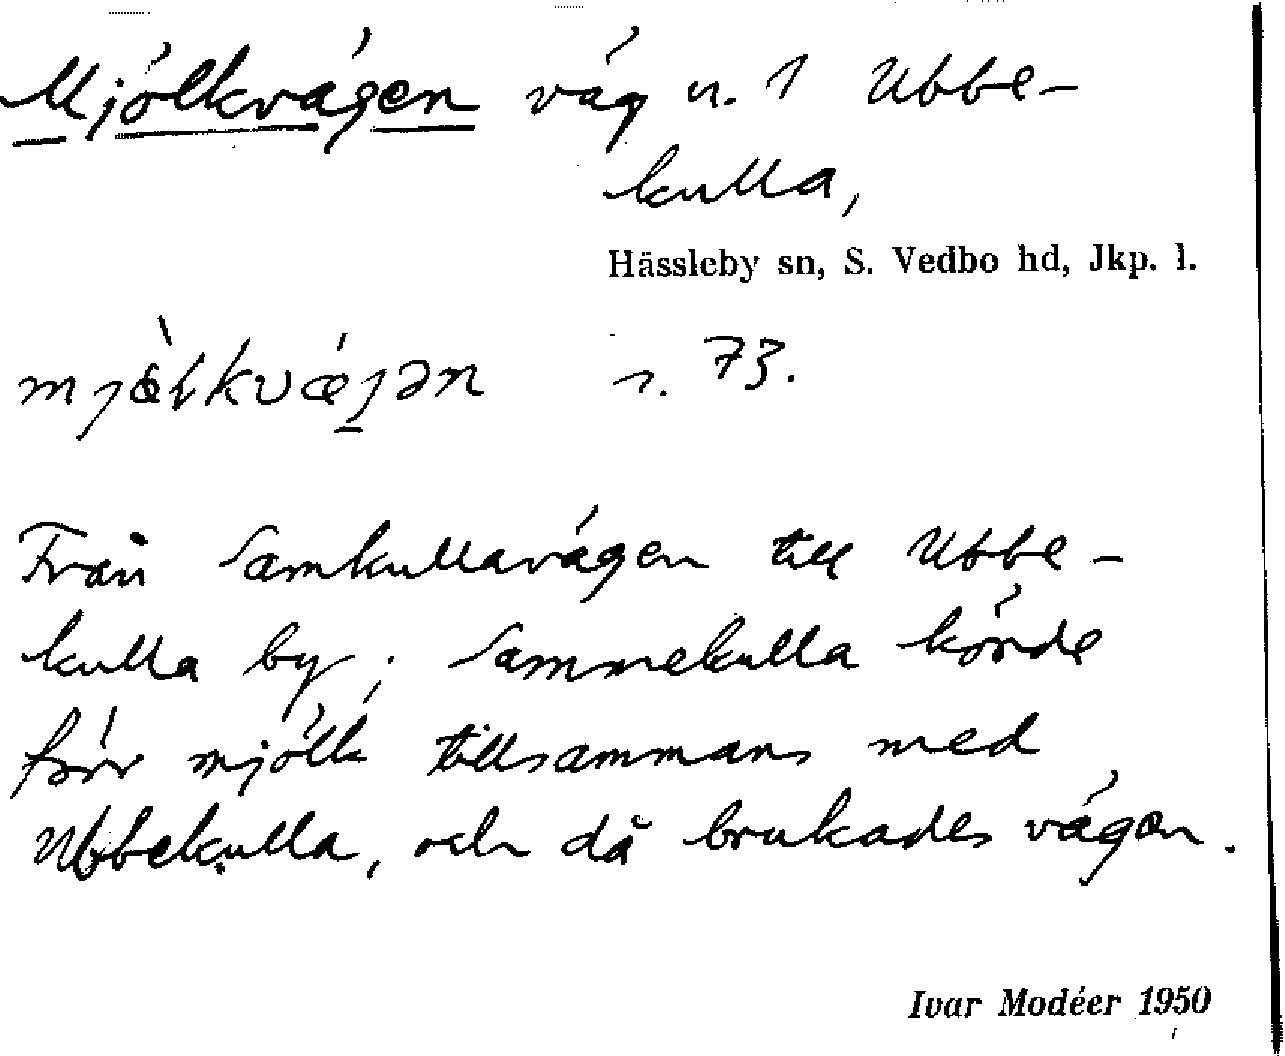 Mjölkvägen väg n. 1 Ubbe-
kulla,
Hässleby sn, S. Vedbo hd, Jkp. l.
r. 73.
Från Samkullavägen till Ubbe-
kulla by; Sammekulla körde
förr mjölk tillsammans med
Ubbekulla, och då brukades vägen.
Ivar Modéer 1950